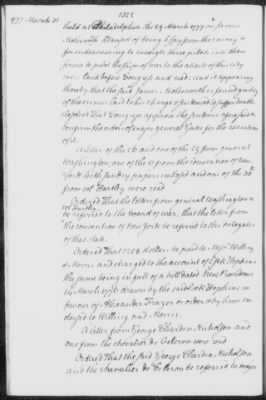 1822
1777 March 31
held at Philadelphia the 29 March 1777 on James
Molesworth accused of being a spy from the enemy &
for endeavouring to inveigle three pilots
from to pilot the ships of war to the attack of this city
were laid before Congress and read: and it appearing
thereby that the said James Molesworth is found guilty
of the crime laid to his charge & sentenced to suffer death
Resolved That Congress approve the sentence of said
major general Gates for the execution
of it.
A letter of the 26 and one of the 29 from general
Washington; one of the from the convention of new
York with sundry papers inclosed and one of the 30th
from col Hartley were read
Ordered That the letters from general Washington &
col Hartley
be referred to the board of war, that the letter from
the convention of new York be referred to the delegates
of that state.
Ordered That 1208 dollars be paid to Messrs Willing
& Morris and charged to the account of Esek Hopkins
the same being in full of a bill dated Providence
14 March 1776 drawn by the said Esek Hopkins in
favour of Alexander Frazer or order & by him en-
dorsed to Willing and Morris.
A letter from George Chardin Nicholson and
one from the chevalier de Celeron were read
Ordered That the said George Chardin Nicholson
and the chevalier de Celeron be referred to major